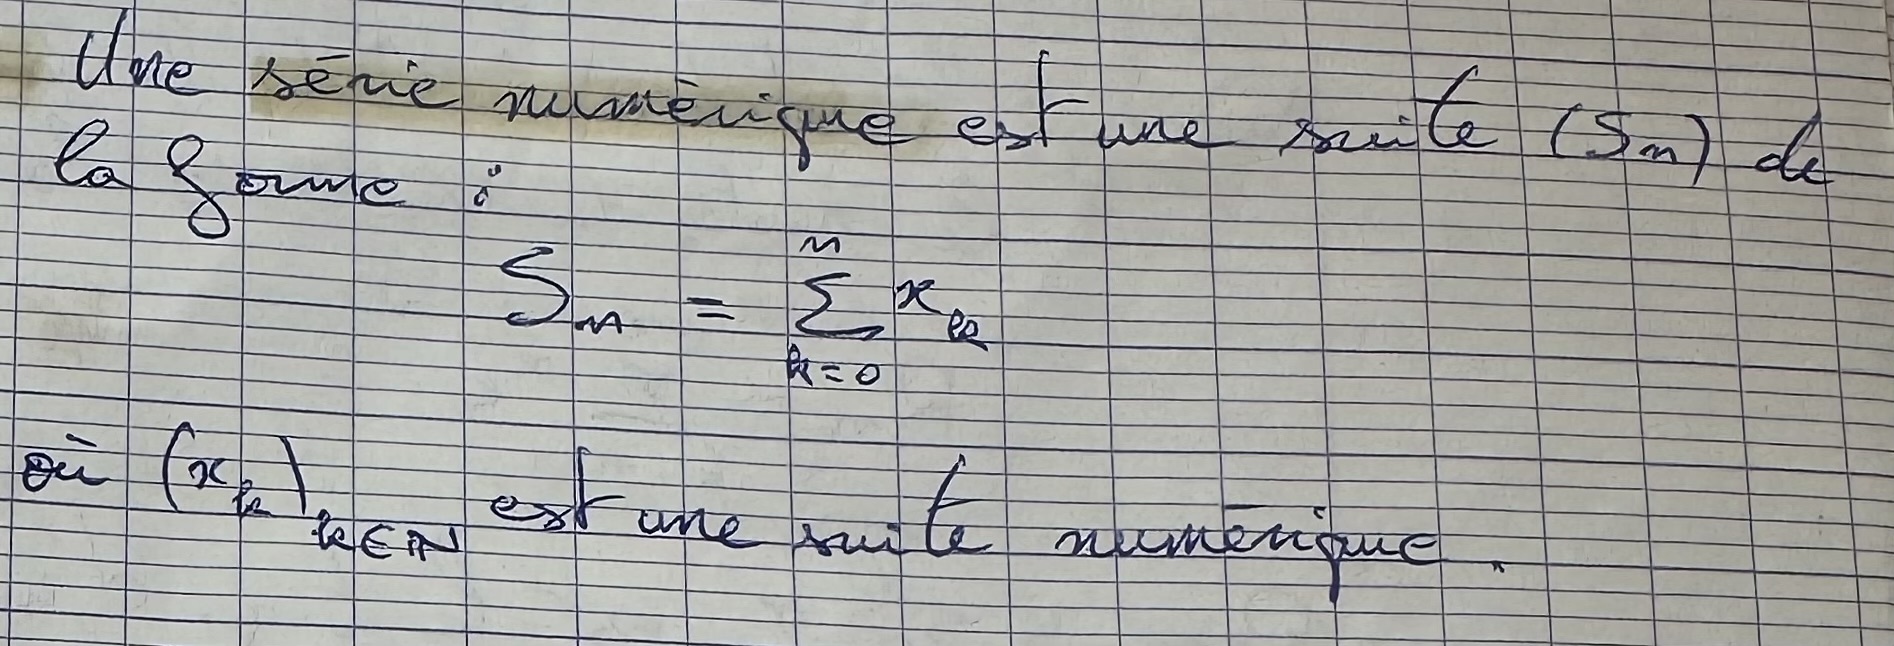 Une série numérique est une suite (Sn) de
la forme :
n
Sn = ∑ xk
k=0
où (xk)k∈ℕ est une suite numérique.